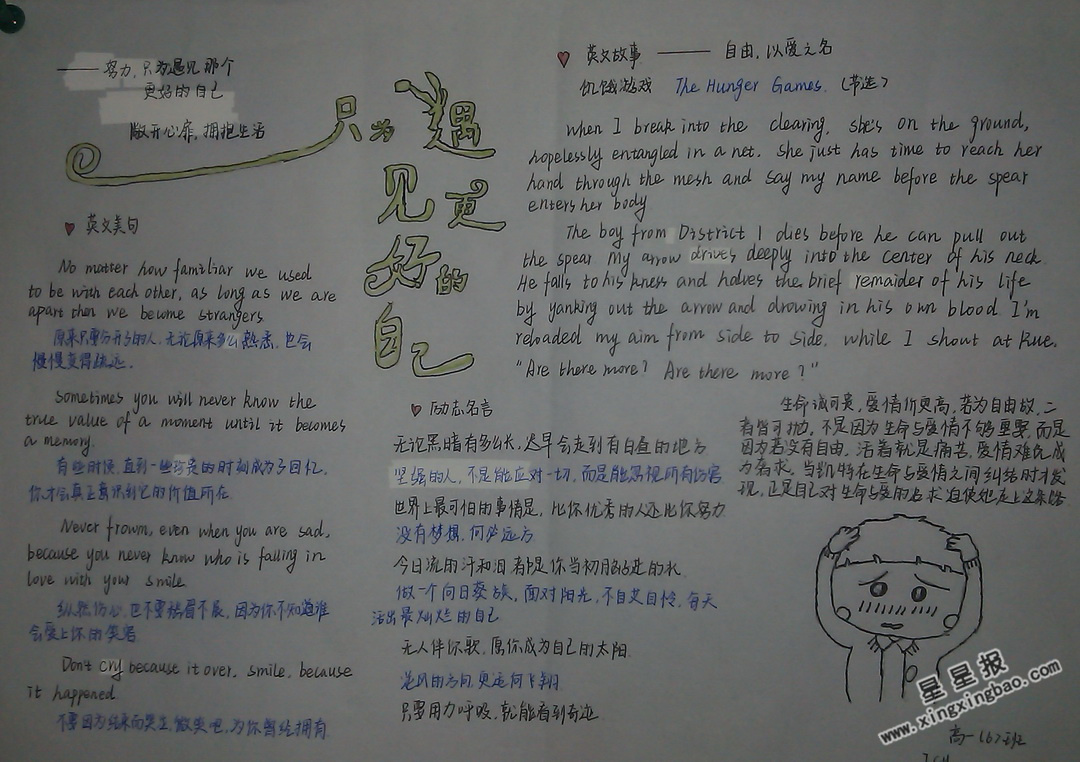 ——努力,只为遇见那个
更好的自己
敞开心扉,拥抱生活
只为遇
见更
好的
自己
英文美句
No matter how familiar we used
to be with each other, as long as we are
apart then we become strangers.
原来只要分开了的人,无论原来多么熟悉,也会
慢慢变得疏远。
Sometimes you will never know the
true value of a moment until it becomes
a memory.
有些时候,直到一些珍贵的时刻成为了回忆,
你才会真正意识到它的价值所在
Never frown, even when you are sad,
because you never know who is falling in
love with your smile
纵然伤心,也不要愁眉不展,因为你不知道谁
会爱上你的笑容
Don't cry because it over, smile, because
it happened
不要因为结束而哭泣,微笑吧,为你曾经拥有
励志名言
无论黑暗有多么长,迟早会走到有白昼的地方
坚强的人,不是能应对一切,而是能忽视所有伤害
世界上最可怕的事情是,比你优秀的人还比你努力
没有梦想,何必远方
今日流的汗和泪都是你当初脑进的水
做一个向日葵族,面对阳光,不自艾自怜,每天
活出最灿烂的自己
无人伴你歌,愿你成为自己的太阳.
逆风的方向,更适合飞翔.
只要用力呼吸,就能看到奇迹
英文故事 —— 自由,以爱之名
饥饿游戏 The Hunger Games. (节选)
When I break into the clearing, she's on the ground,
hopelessly entangled in a net. She just has time to reach her
hand through the mesh and say my name before the spear
enters her body
The boy from District 1 dies before he can pull out
the spear My arrow drives deeply into the center of his neck
He falls to his kness and halves the brief remaider of his life
by yanking out the arrow and drowing in his own blood I'm
reloaded my aim from side to side, while I shout at Rue.
"Are there more? Are there more?"
生命诚可贵,爱情价更高,若为自由故,二
者皆可抛,不是因为生命与爱情不够重要,而是
因为若没有自由,活着就是痛苦,爱情难免成
为奢求,当凯特在生命与爱情之间纠结时才发
现,正是自己对生命与爱的追求迫使她走上这条路
高一(6)班
星星报
www.xingxingbao.com